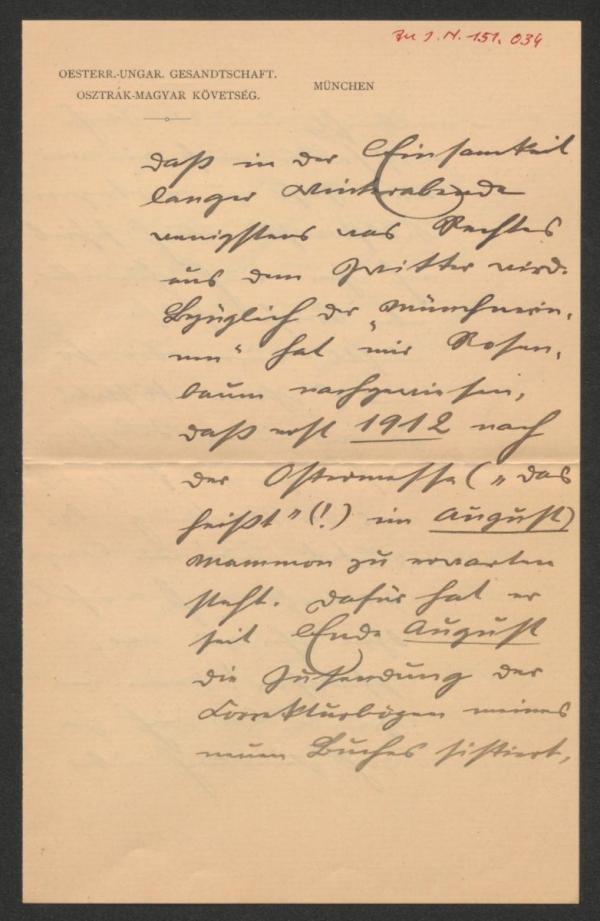 Zu I. N. 151.034
OESTERR.-UNGAR. GESANDTSCHAFT.
OSZTRÁK-MAGYAR KÖVETSÉG.
MÜNCHEN
daß in der Einsamkeit
langer Winterabende
wenigstens was Rechtes
aus dem Zwitter wird.
Bezüglich der „Münchnerin-
nen" hat mir Rosen-
baum nachgewiesen,
daß erst 1912 nach
der Ostermesse („das
heißt" (!) im August)
Mammon zu erwarten
steht. Dafür hat er
seit Ende August
die Zusendung der
Correkturbögen meines
neuen Buches sistiert,